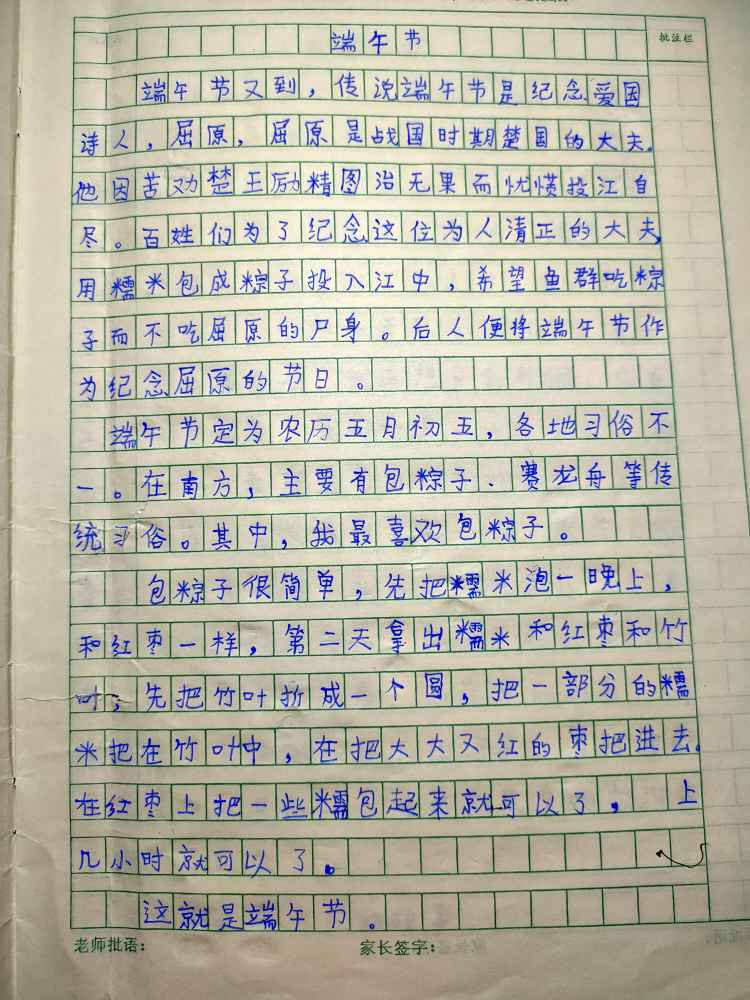 端午节
批注栏
端午节又到，传说端午节是纪念爱国
诗人，屈原，屈原是战国时期楚国的大夫.
他因苦劝楚王励精图治无果而忧愤投江自
尽。百姓们为了纪念这位为人清正的大夫,
用糯米包成粽子投入江中，希望鱼群吃粽
子而不吃屈原的尸身。后人便将端午节作
为纪念屈原的节日。
端午节定为农历五月初五，各地习俗不
一。在南方，主要有包粽子．赛龙舟等传
统习俗。其中，我最喜欢包粽子。
包粽子很简单，先把糯米泡一晚上，
和红枣一样，第二天拿出糯米和红枣和竹
叶，先把竹叶折成一个圆，把一部分的糯
米把在竹叶中，在把大大又红的枣把进去.
在红枣上把一些糯包起来就可以了，上
几小时就可以了。
这就是端午节。
老师批语：
家长签字：